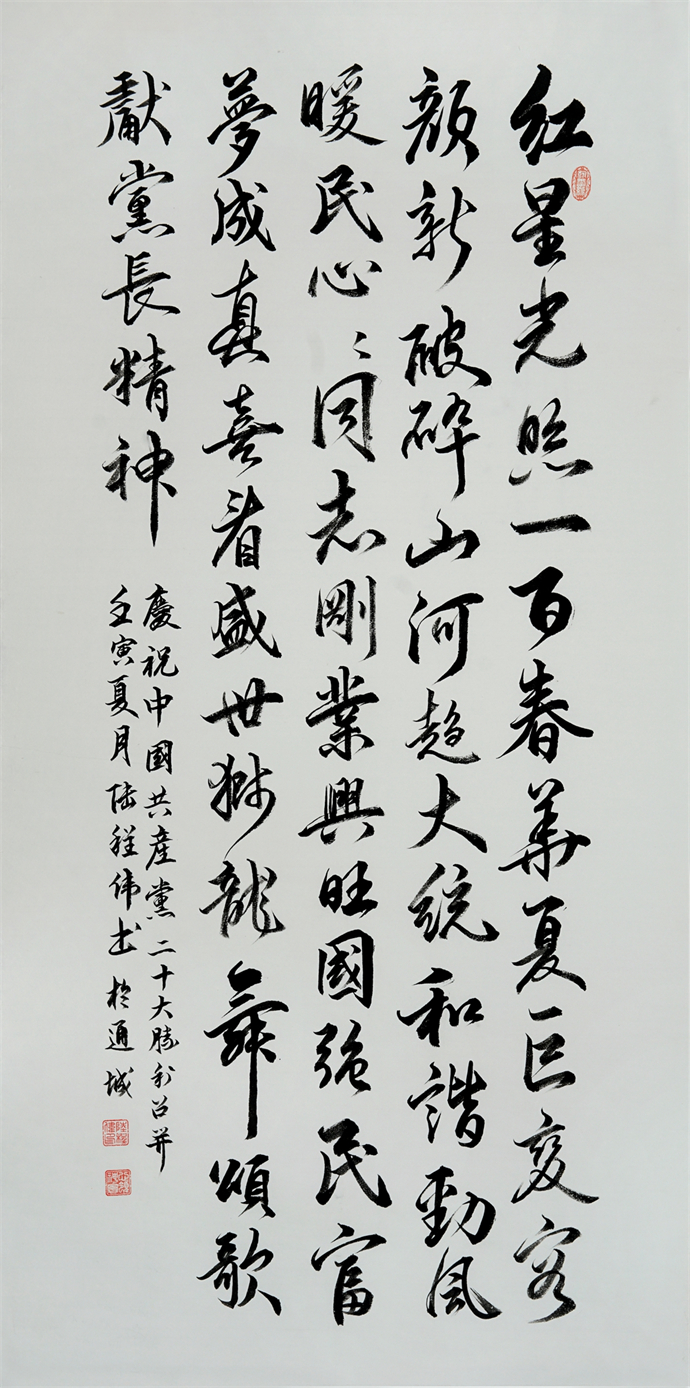 红星光照一百春華夏巨变容
顔新破碎山河趋大统和諧勁風
暖民心〻同志剛業興旺國強民富
夢成真喜看盛世獅龍舞頌歌
獻黨長精神
慶祝中國共産黨二十大勝利召开
壬寅夏月陆程伟书於通城